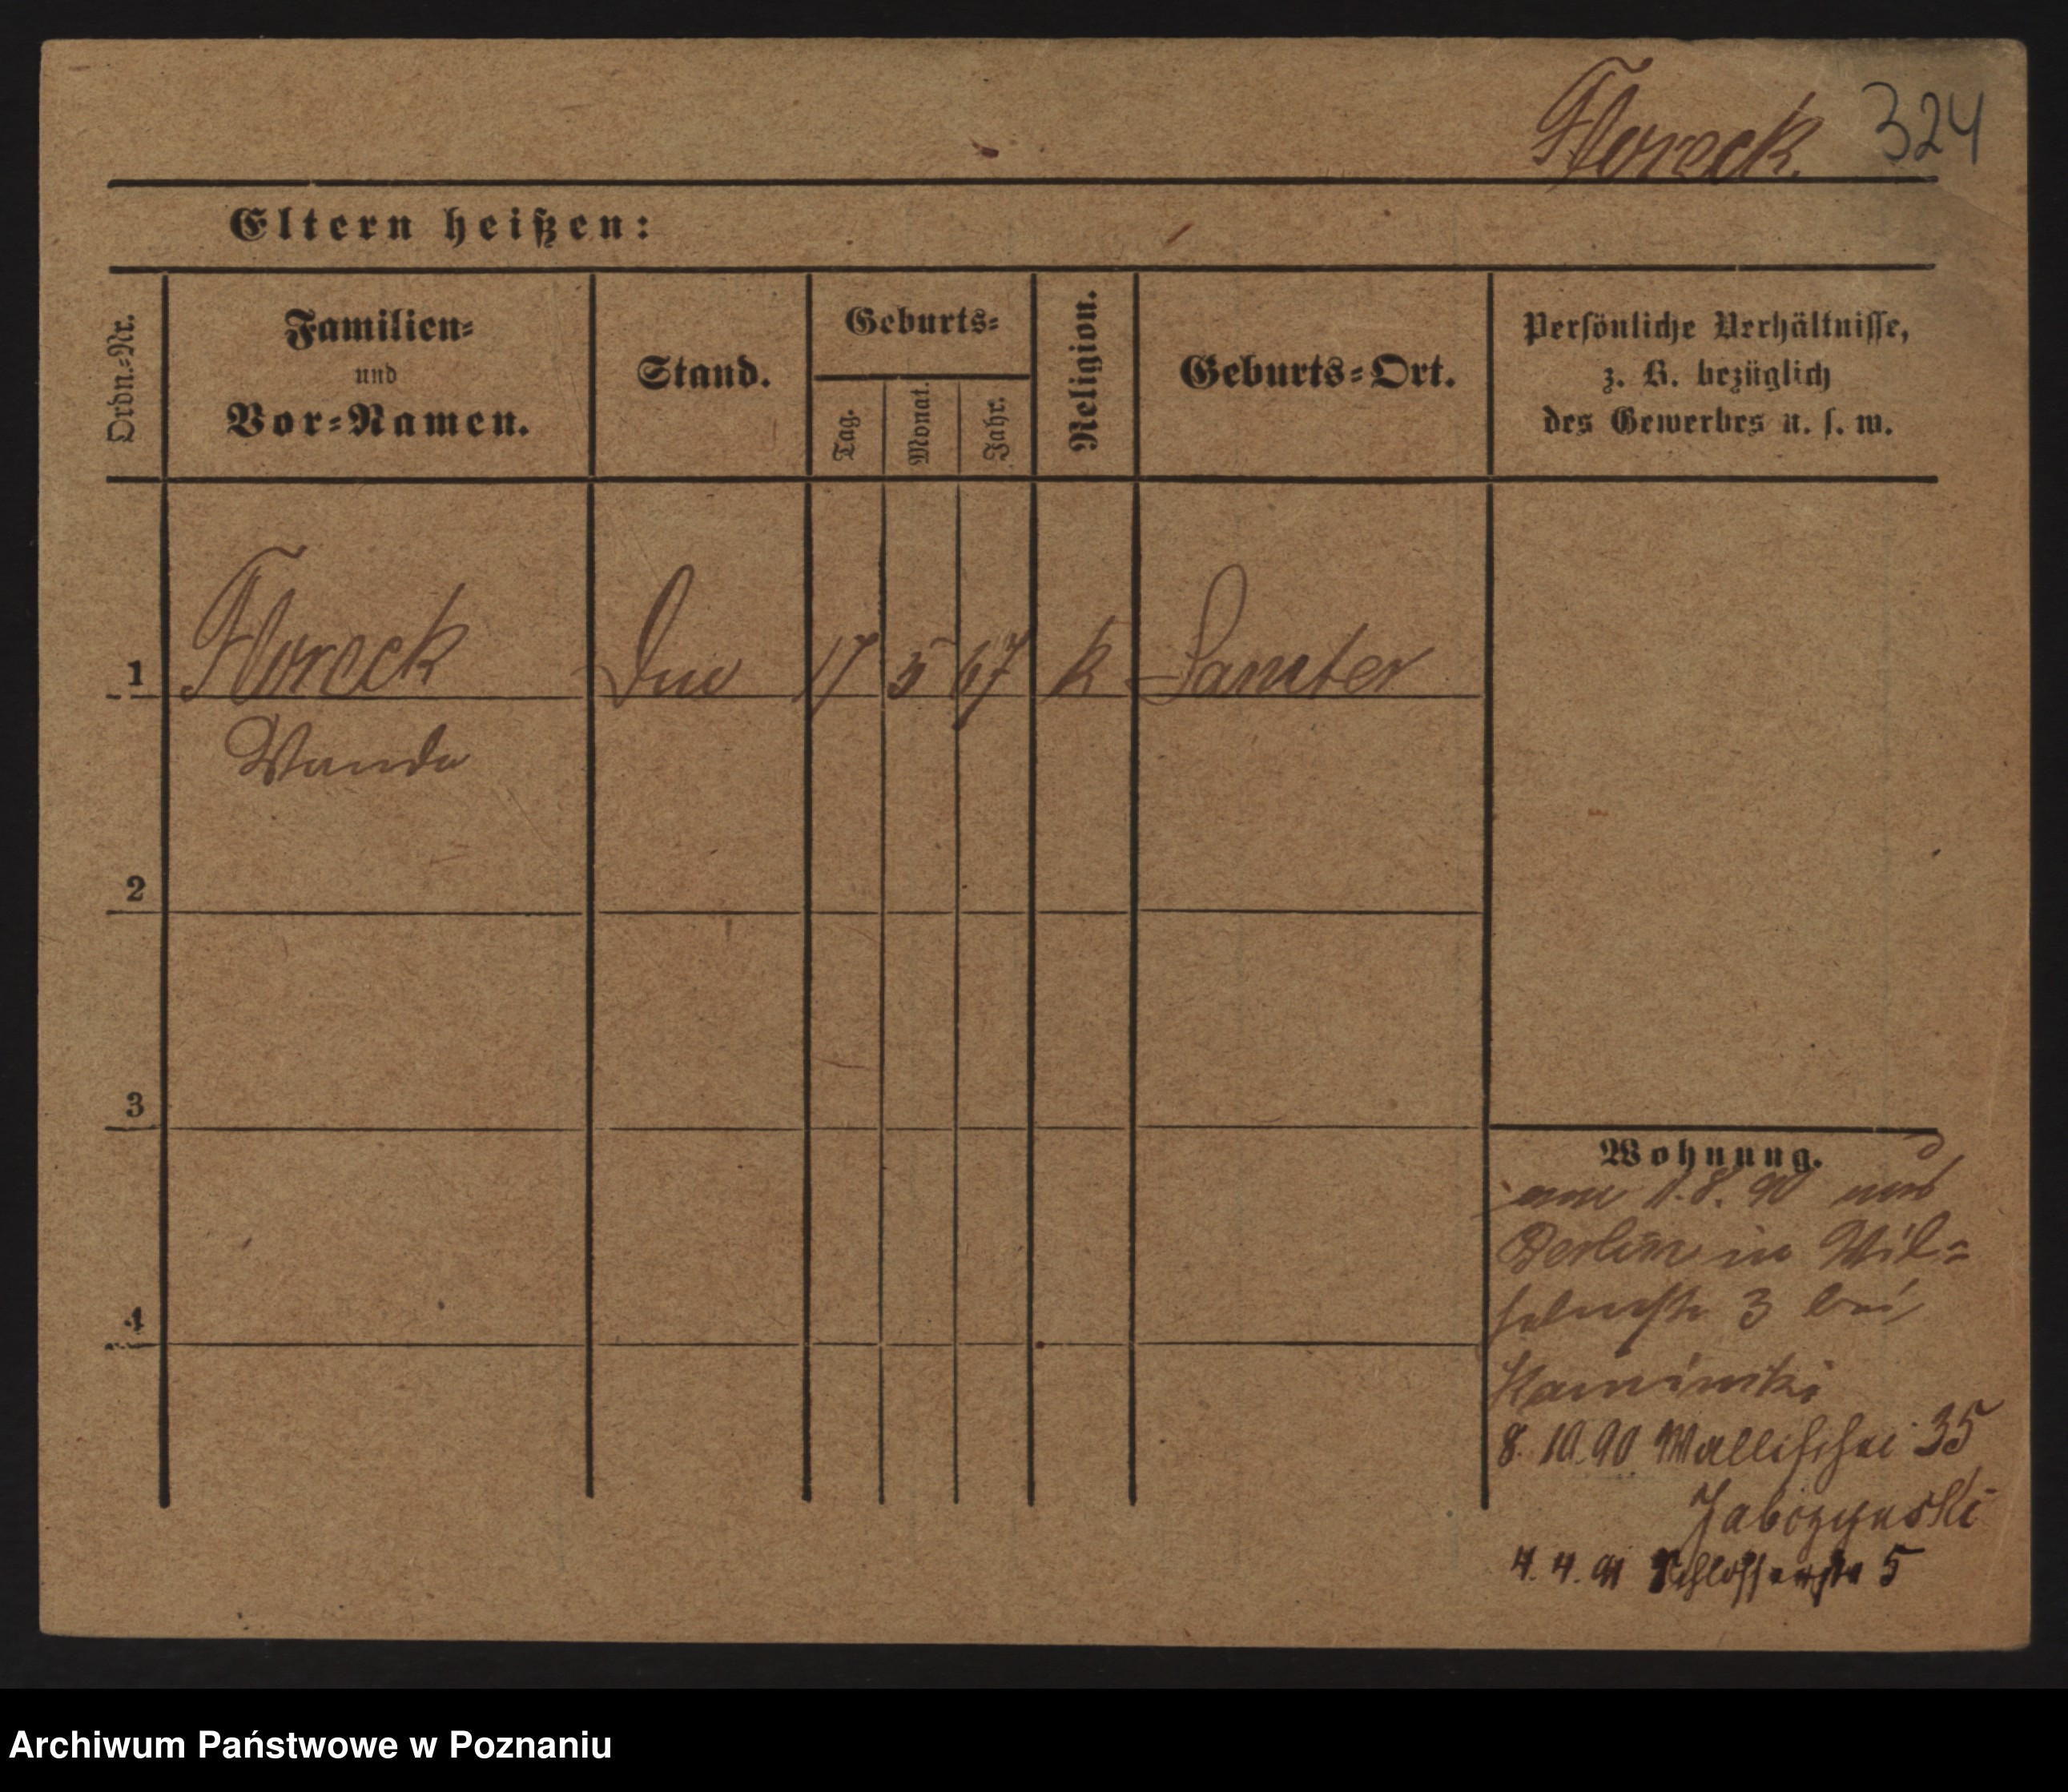 Floreck. 324
Eltern heißen:
Ordn.=Nr.
Familien=
und
Vor=Namen.
Stand.
Geburts=
Tag.
Monat.
Jahr.
Religion.
Geburts=Ort.
Persönliche Verhältnisse,
z. B. bezüglich
des Gewerbes u. s. w.
1 Floreck 17 5 67 k Samter
Wanda
2
3
4
Wohnung.
8. 90
Berlin in Wil=
helmstr 3 bei
Kaminski
8. 10. 90 Wallischei 35
4. 4. 91 Schlosserstr 5
Archiwum Państwowe w Poznaniu